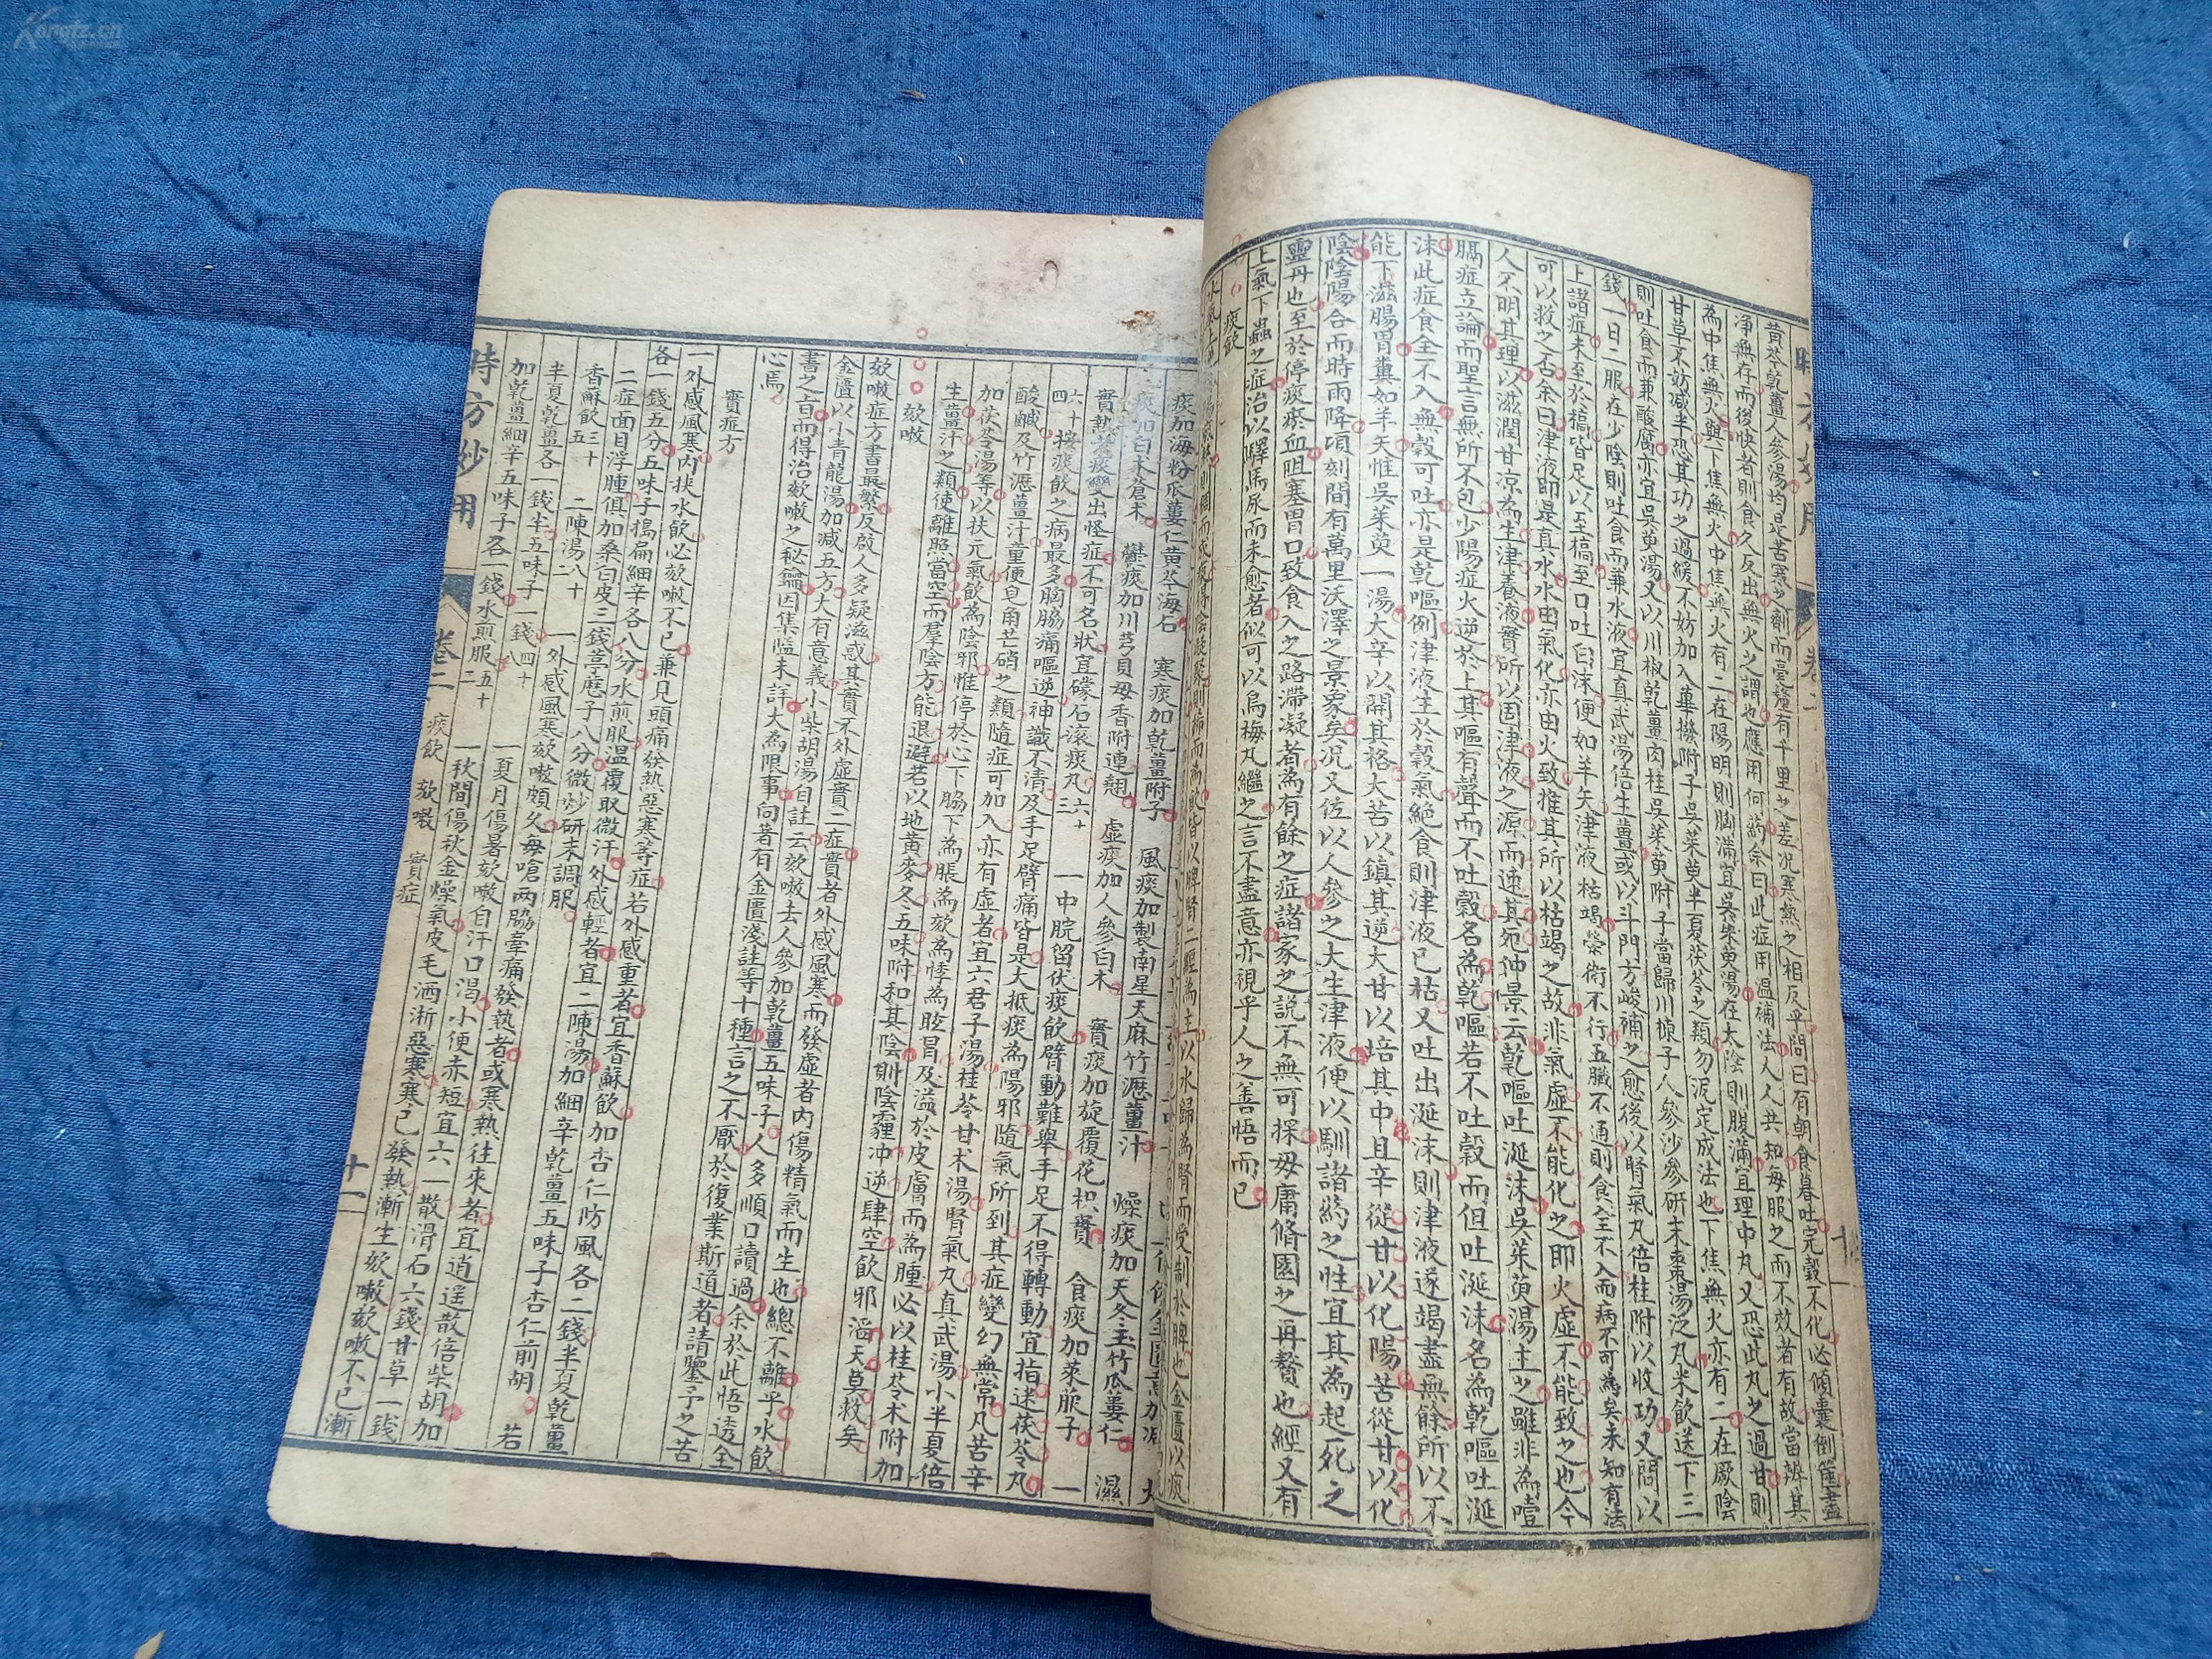 黃芩乾薑人參湯均是苦寒之劑而毫釐有千里之差况寒熱之相反乎問曰有朝食暮吐完穀不化必傾囊倒篋盡
淨無存而後快者則食久反出無火之謂也應用何藥余曰此症用溫補法人人共知每服之而不效者有故當辨其
為中焦無火與下焦無火中焦無火有二在陽明則胸滿宜吳茱萸湯在太陰則腹滿宜理中丸又恐此丸之過甘則
甘草不妨減半恐其功之過緩不妨加入蓽撥附子吳茱萸半夏茯苓之類勿泥定成法也下焦無火亦有二在厥陰
則吐食而兼酸腐亦宜吳萸湯又以川椒乾薑肉桂吳茱萸附子當歸川楝子人參沙參研末棗湯泛丸米飲送下三
錢一日二服在少陰則吐食而兼水液宜真武湯倍生薑或以斗門方峻補之愈後以腎氣丸倍桂附以收功又問以
上諸症未至於槁皆足以至槁至口吐白沫便如羊矢津液枯竭榮衛不行五臟不通則食全不入而病不可為矣未知有法
可以救之否余曰津液即是真水水由氣化亦由火致推其所以枯竭之故非氣虛不能化之即火虛不能致之也今
人不明其理以滋潤甘涼為生津養液實所以涸津液之源而速其死仲景云乾嘔吐涎沫吳茱萸湯主之雖非為噎
膈症立論而聖言無所不包少陽症火逆於上其嘔有聲而不吐穀名為乾嘔若不吐穀而但吐涎沫名為乾嘔吐涎
沫此症食全不入無穀可吐亦是乾嘔例津液主於穀氣絕食則津液已枯又吐出涎沫則津液遂竭盡無餘所以不
能下滋腸胃糞如羊矢惟吳茱萸一湯大辛以開其格大苦以鎮其逆大甘以培其中且辛從甘以化陽苦從甘以化
陰陰陽合而時雨降頃刻間有萬里沃澤之景象矣况又佐以人參之大生津液便以馴諸藥之性宜其為起死之
靈丹也至於停痰瘀血阻塞胃口致食入之路滯凝者為有餘之症諸家之說不無可採毋庸脩園之再贅也經又有
上氣下蟲之症治以驛馬尿而未愈者似可以烏梅丸繼之言不盡意亦視乎人之善悟而已
痰飲
痰加海粉瓜蔞仁黃芩海石 寒痰加乾薑附子 風痰加製南星天麻竹瀝薑汁 燥痰加天冬玉竹瓜蔞仁 濕
痰加白朮蒼朮 鬱痰加川芎貝母香附連翹 虛痰加人參白朮 實痰加旋覆花枳實 食痰加萊菔子 一
實熱老痰變出怪症不可名狀宜礞石滾痰丸三六十 一中脘留伏痰飲臂動難舉手足不得轉動宜指迷茯苓丸
四六十按痰飲之病最多胸脇痛嘔逆神識不清及手足臂痛皆是大抵痰為陽邪隨氣所到其症變幻無常凡苦辛
酸鹹及竹瀝薑汁童便皂角芒硝之類隨症可加入亦有虛者宜六君子湯桂苓甘朮湯腎氣丸真武湯小半夏倍
加茯苓湯等以扶元氣飲為陰邪惟停於心下脇下為脹為欬為悸為眩冒及溢於皮膚而為腫必以桂苓朮附加
生薑汁之類使離照當空而羣陰方能退避若以地黃麥冬五味附和其陰則陰霾冲逆肆空飲邪滔天莫救矣
欬嗽
欬嗽症方書最繁反啟人多疑滋惑其實不外虛實二症實者外感風寒而發虛者內傷精氣而生也總不離乎水飲
金匱以小青龍湯加減五方大有意義小柴胡湯自註云欬嗽去人參加乾薑五味子人多順口讀過余於此悟透全
書之旨而得治欬嗽之秘鑰因集隘未詳大為限事向著有金匱淺註等十種言之不厭於復業斯道者請鑒予之苦
心焉
實症方
一外感風寒內挾水飲必欬嗽不已兼見頭痛發熱惡寒等症若外感重者宜香蘇飲加杏仁防風各二錢半夏乾薑
各一錢五分五味子搗扁細辛各八分水煎服溫覆取微汗外感輕者宜二陳湯加細辛乾薑五味子杏仁前胡 若
二症面目浮腫俱加桑白皮三錢葶藶子八分微炒研末調服
香蘇飲三十五 二陳湯八十二 一外感風寒欬嗽頗久每嗆兩脇牽痛發熱者或寒熱往來者宜逍遙散倍柴胡加
半夏乾薑各一錢半五味子一錢四十八 一夏月傷暑欬嗽自汗口渴小便赤短宜六一散滑石六錢甘草一錢
加乾薑細辛五味子各一錢水煎服五十二 一秋間傷秋金燥氣皮毛洒淅惡寒寒已發熱漸生欬嗽欬嗽不已漸
時方妙用 卷二 痰飲 欬嗽 實症 十二